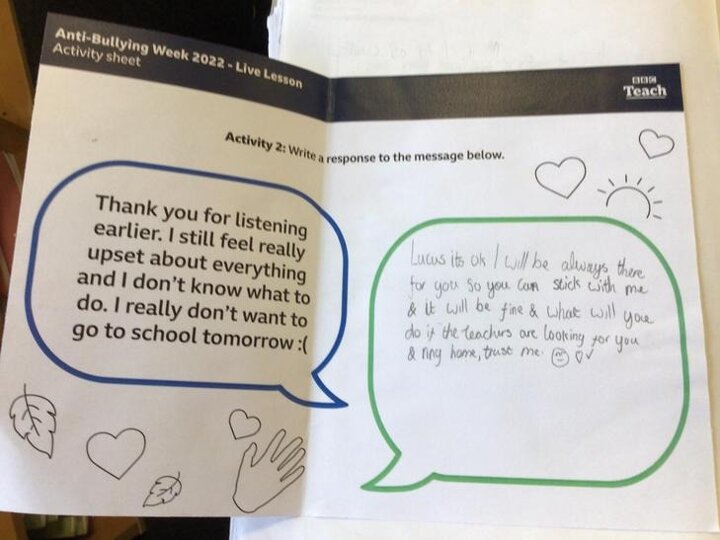 Anti-Bullying Week 2022 - Live Lesson
Activity sheet
BBC
Teach
Activity 2: Write a response to the message below.
Thank you for listening
earlier. I still feel really
upset about everything
and I don't know what to
do. I really don't want to
go to school tomorrow :(
Lucus its ok I will be always there
for you so you can stick with me
& It will be fine & what will you
do if the teachers are looking for you
& ring home, trust me.